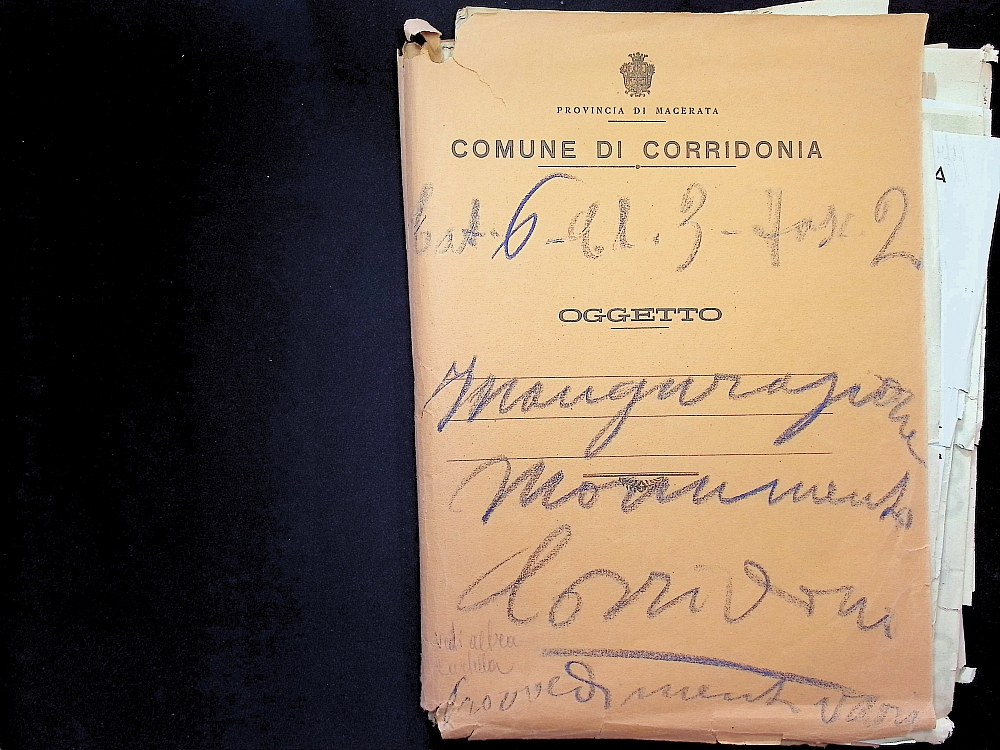 PROVINCIA DI MACERATA
COMUNE DI CORRIDONIA
Cat. 6 - Cl. 3 - Fasc. 2
OGGETTO
Inaugurazione
Monumento
Corridoni
vedi altra
cartella
Provvedimenti vari
A